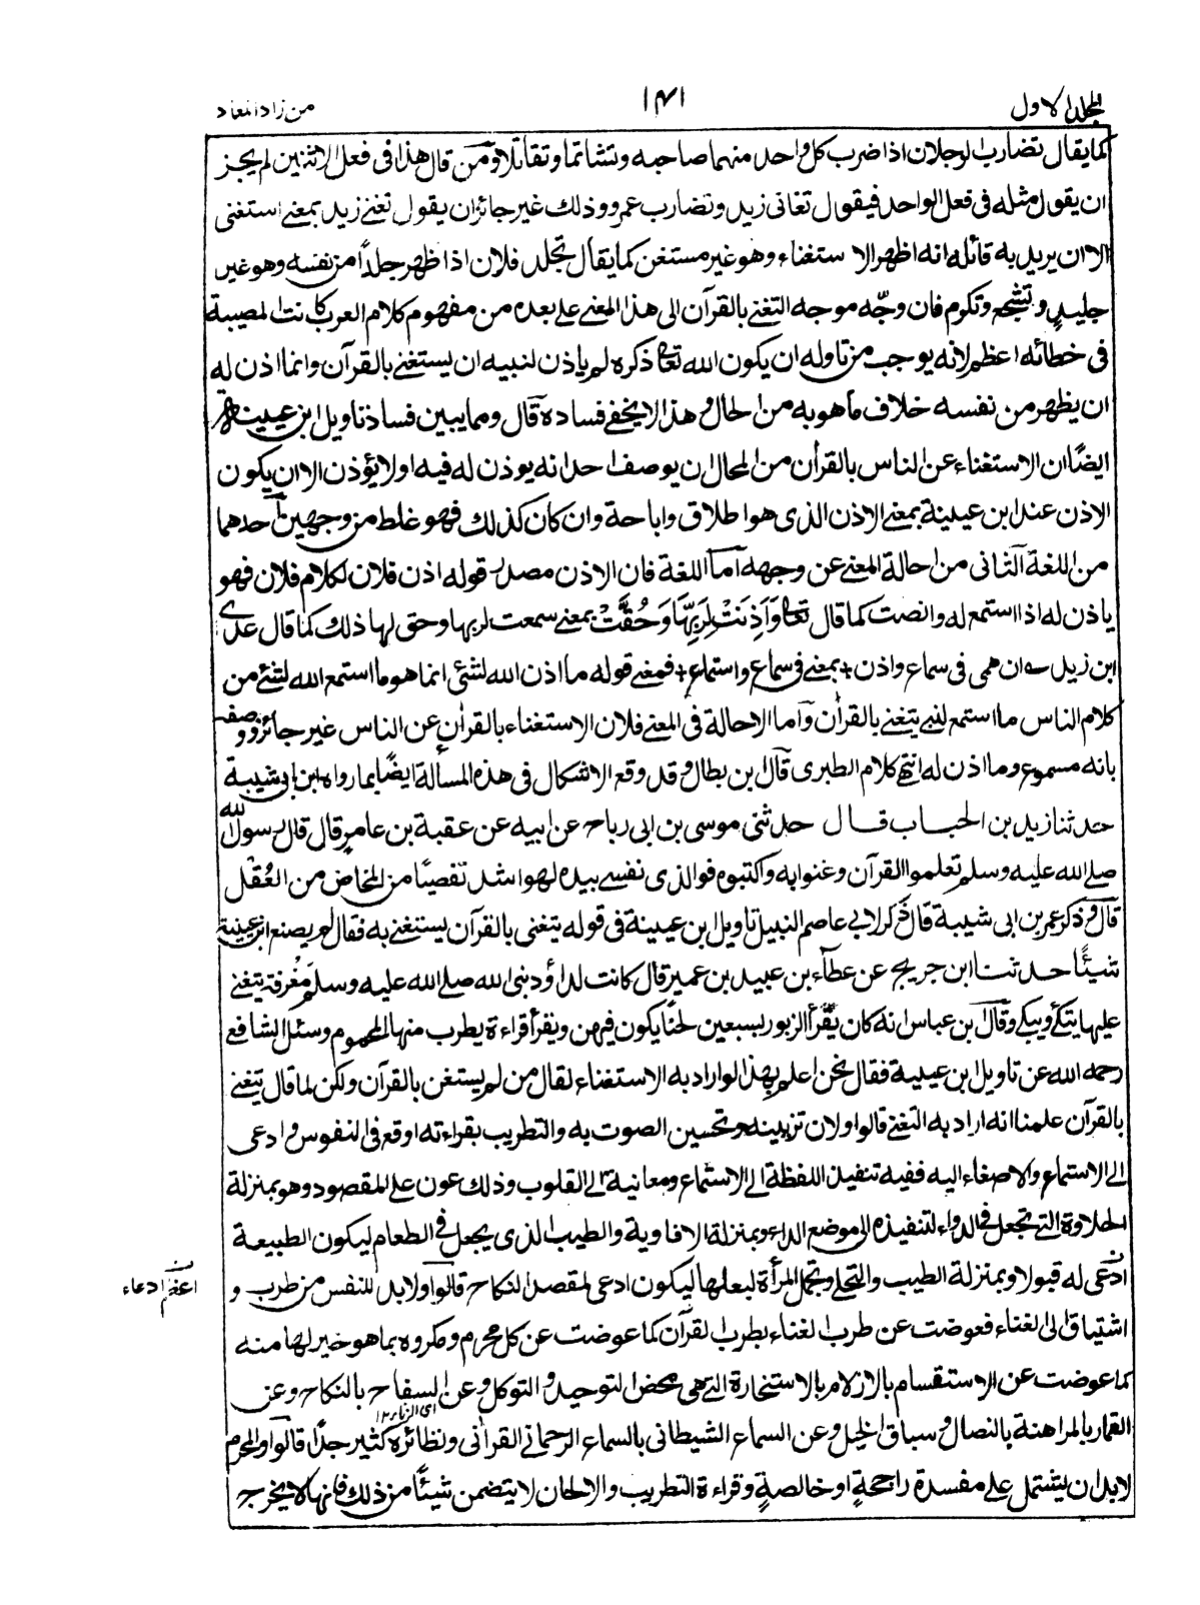 المجلد الاول
١٤١
من زاد المعاد
كما يقال تضارب الرجلان اذا ضرب كل واحد منهما صاحبه وتشاتما وتقاتلا ومن قال هذا فى فعل الاثنين لم يجز
ان يقول مثله فى فعل الواحد فيقول تغانى زيد وتضارب عمرو وذلك غير جائز ان يقول تغنى زيد بمعنى استغنى
الا ان يريد به قائله انه اظهر الاستغناء وهو غير مستغن كما يقال تجلد فلان اذا ظهر جلداً من نفسه وهو غير
جليد وتشجع وتكرم فان وجّه موجه التغنى بالقرآن الى هذا المعنى على بعده من مفهوم كلام العرب كانت المصيبة
فى خطائه اعظم لانه يوجب من تاوله ان يكون الله تعالى ذكره لم ياذن لنبيه ان يستغنى بالقرآن وانما اذن له
ان يظهر من نفسه خلاف ما هو به من الحال وهذا لا يخفى فساده قال ومما يبين فساد تاويل ابن عيينة
ايضًا ان الاستغناء عن الناس بالقرأن من المحال ان يوصف احد انه يوذن له فيه او لا يؤذن الا ان يكون
الاذن عند ابن عيينة بمعنى الاذن الذى هو اطلاق واباحة وان كان كذلك فهو غلط من وجهين احدهما
من اللغة الثانى من احالة المعنى عن وجهه اما اللغة فان الاذن مصدر قوله اذن فلان لكلام فلان فهو
ياذن له اذا استمع له وانصت كما قال تعالى وَاَذِنَتْ لِرَبِّهَا وَحُقَّتْ بمعنى سمعت لربها وحق لها ذلك كما قال عدى
ابن زيد ان همى فى سماع واذن + بمعنى فى سماع واستماع + فمعنى قوله ما اذن الله لشئى انما هو ما استمع الله لشئ من
كلام الناس ما استمع لنبى يتغنى بالقرأن واما الاحالة فى المعنى فلان الاستغناء بالقرأن عن الناس غير جائز وصفه
بانه مسموع وما اذن له انتهى كلام الطبرى قال ابن بطال وقد وقع الاشكال فى هذه المسألة ايضًا بما رواه ابن ابى شيبة
حدثنا زيد بن الحباب قال حدثنى موسى بن ابى رباح عن ابيه عن عقبة بن عامر قال قال رسول الله
صلى الله عليه وسلم تعلموا القرآن وغنوا به واكتبوه فوالذى نفسى بيده لهو اشد تفصيًا من المخاض من العُقُل
قال وذكر عمر بن ابى شيبة قال ذكر لابى عاصم النبيل تاويل ابن عيينة فى قوله يتغنى بالقرآن يستغنى به فقال لم يصنع ابن عيينة
شيئًا حدثنا ابن جريج عن عطاء بن عبيد بن عمير قال كانت لداؤد نبى الله صلى الله عليه وسلم مَعْرفة يتغنى
عليها يتكى ويبكى وقال ابن عباس انه كان يقرأ الزبور بسبعين لحنًا يكون فيهن ويقرأ قراءة يطرب منها المحموم وسئل الشافعى
رحمه الله عن تاويل ابن عيينة فقال نحن اعلم بهذا لو اراد به الاستغناء لقال من لم يستغن بالقرآن ولكن لما قال يتغنى
بالقرآن علمنا انه اراد به التغنى قالوا ولان تزيينه وتحسين الصوت به والتطريب بقراءته اوقع فى النفوس وادعى
الى الاستماع والاصغاء اليه ففيه تنفيذ اللفظة الى الاستماع ومعانية الى القلوب وذلك عون على المقصود وهو بمنزلة
الحلاوة التى تجعل فى الدواء لتنفيذه الى موضع الداء وبمنزلة الافاوية والطيب الذى يجعل فى الطعام ليكون الطبيعة
ادعى له قبولا وبمنزلة الطيب والتحلى وتجمل المرأة لبعلها ليكون ادعى لمقصد النكاح قالوا ولابد للنفس من طرب و
اشتياق الى الغناء فعوضت عن طرب الغناء بطرب القرآن كما عوضت عن كل محرم ومكروه بما هو خير لها منه
كما عوضت عن الاستقسام بالازلام بالاستخارة التى هى محض التوحيد والتوكل وعن السفاح بالنكاح وعن
اى الزنا ١٢
القمار بالمراهنة بالنصال وسباق الخيل وعن السماع الشيطانى بالسماع الرحمانى القرأنى ونظائره كثير جدًا قالوا والمحرم
لابد ان يشتمل على مفسدة راجحةٍ او خالصةٍ وقراءة التطريب والالحان لا يتضمن شيئًا من ذلك فانها لا يخرج